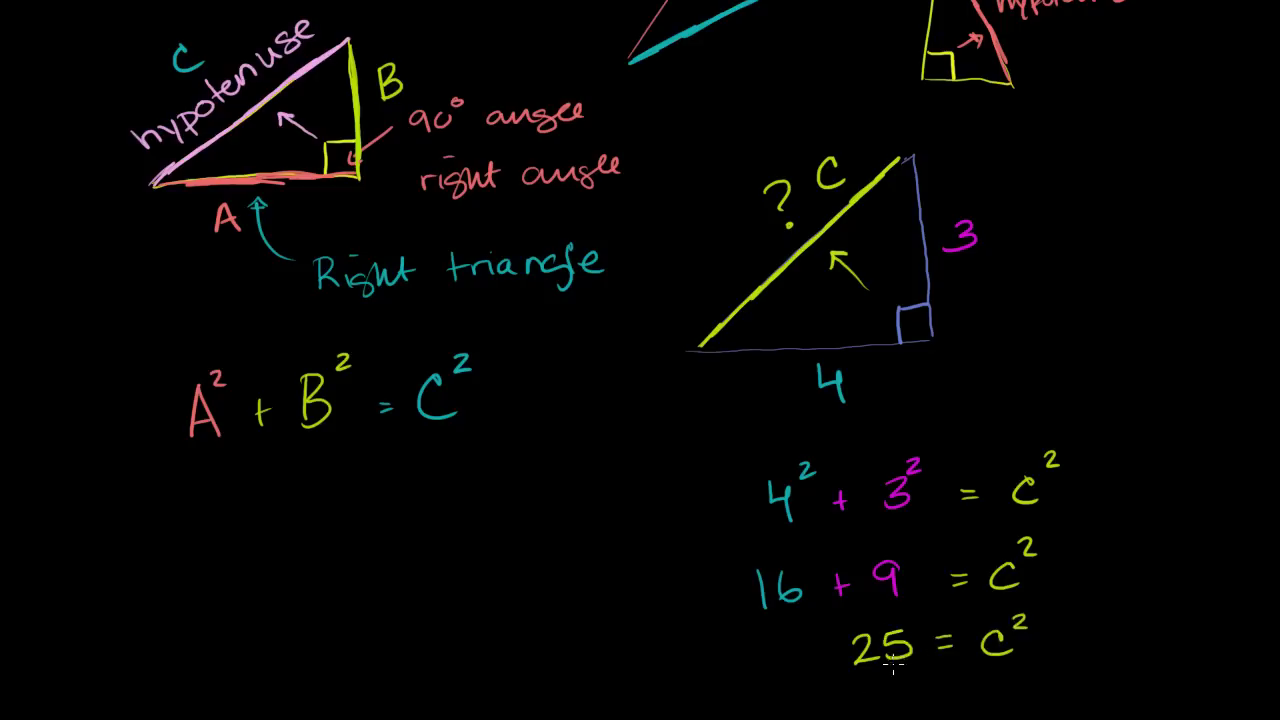 C
hypotenuse
B
90° angle
right angle
A
Right triangle
A² + B² = C²
? C
3
4
4² + 3² = C²
16 + 9 = C²
25 = C²